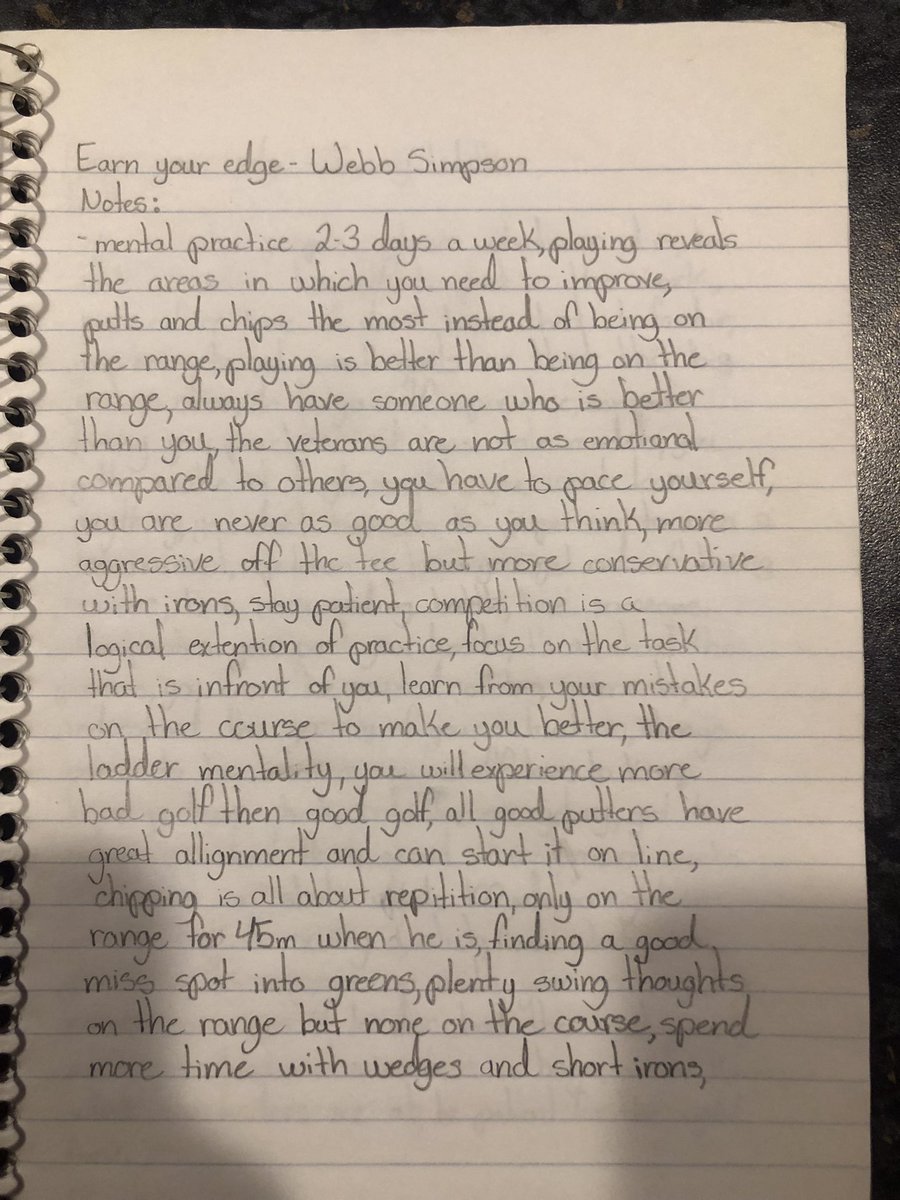 Earn your edge - Webb Simpson
Notes:
- mental practice 2-3 days a week, playing reveals
the areas in which you need to improve,
putts and chips the most instead of being on
the range, playing is better than being on the
range, always have someone who is better
than you, the veterans are not as emotional
compared to others, you have to pace yourself,
you are never as good as you think, more
aggressive off the tee but more conservative
with irons, stay patient, competition is a
logical extention of practice, focus on the task
that is infront of you, learn from your mistakes
on the course to make you better, the
ladder mentality, you will experience more
bad golf then good golf, all good putters have
great allignment and can start it on line,
chipping is all about repitition, only on the
range for 45m when he is, finding a good
miss spot into greens, plenty swing thoughts
on the range but none on the course, spend
more time with wedges and short irons,